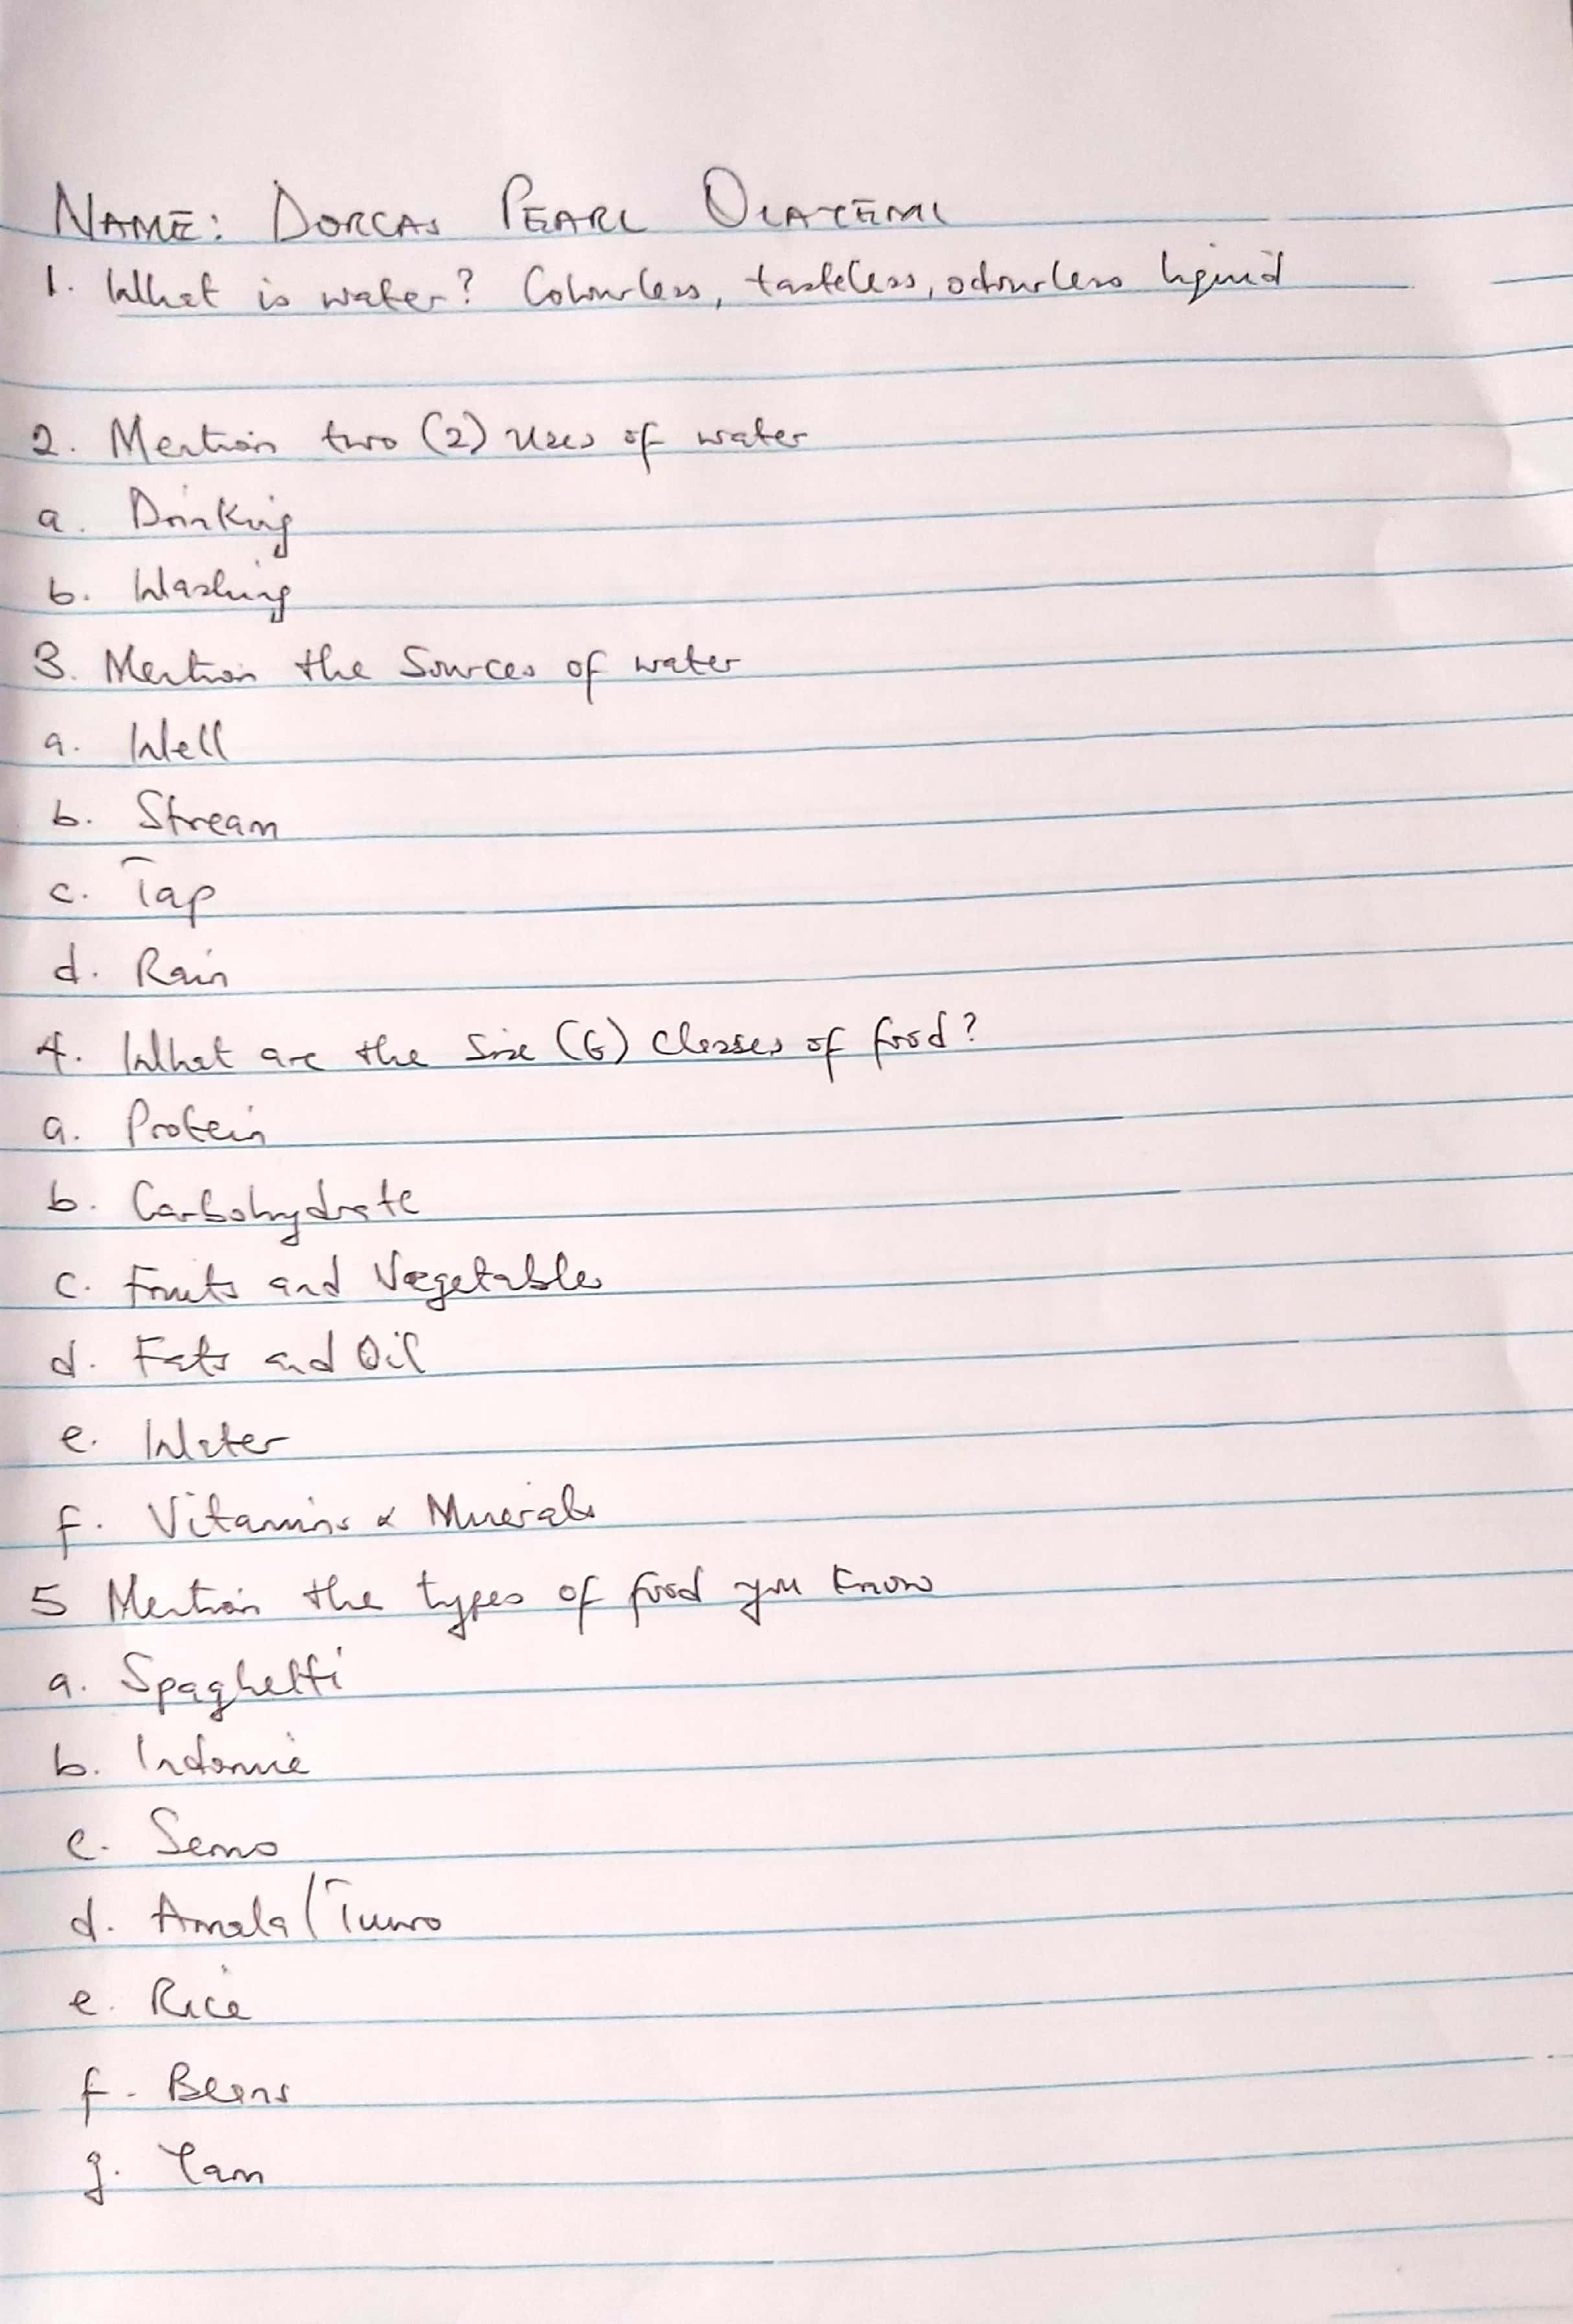 NAME: DORCAS PEARL OLAYEMI
1. What is water? Colourless, tasteless, odourless liquid
2. Mention two (2) uses of water
a. Drinking
b. Washing
3. Mention the Sources of water
a. Well
b. Stream
c. Tap
d. Rain
4. What are the Six (6) Classes of food?
a. Protein
b. Carbohydrate
c. Fruits and Vegetables
d. Fats and Oil
e. Water
f. Vitamins & Minerals
5 Mention the types of food you know
a. Spaghetti
b. Indomie
c. Semo
d. Amala/Tuwo
e. Rice
f. Beans
g. Yam